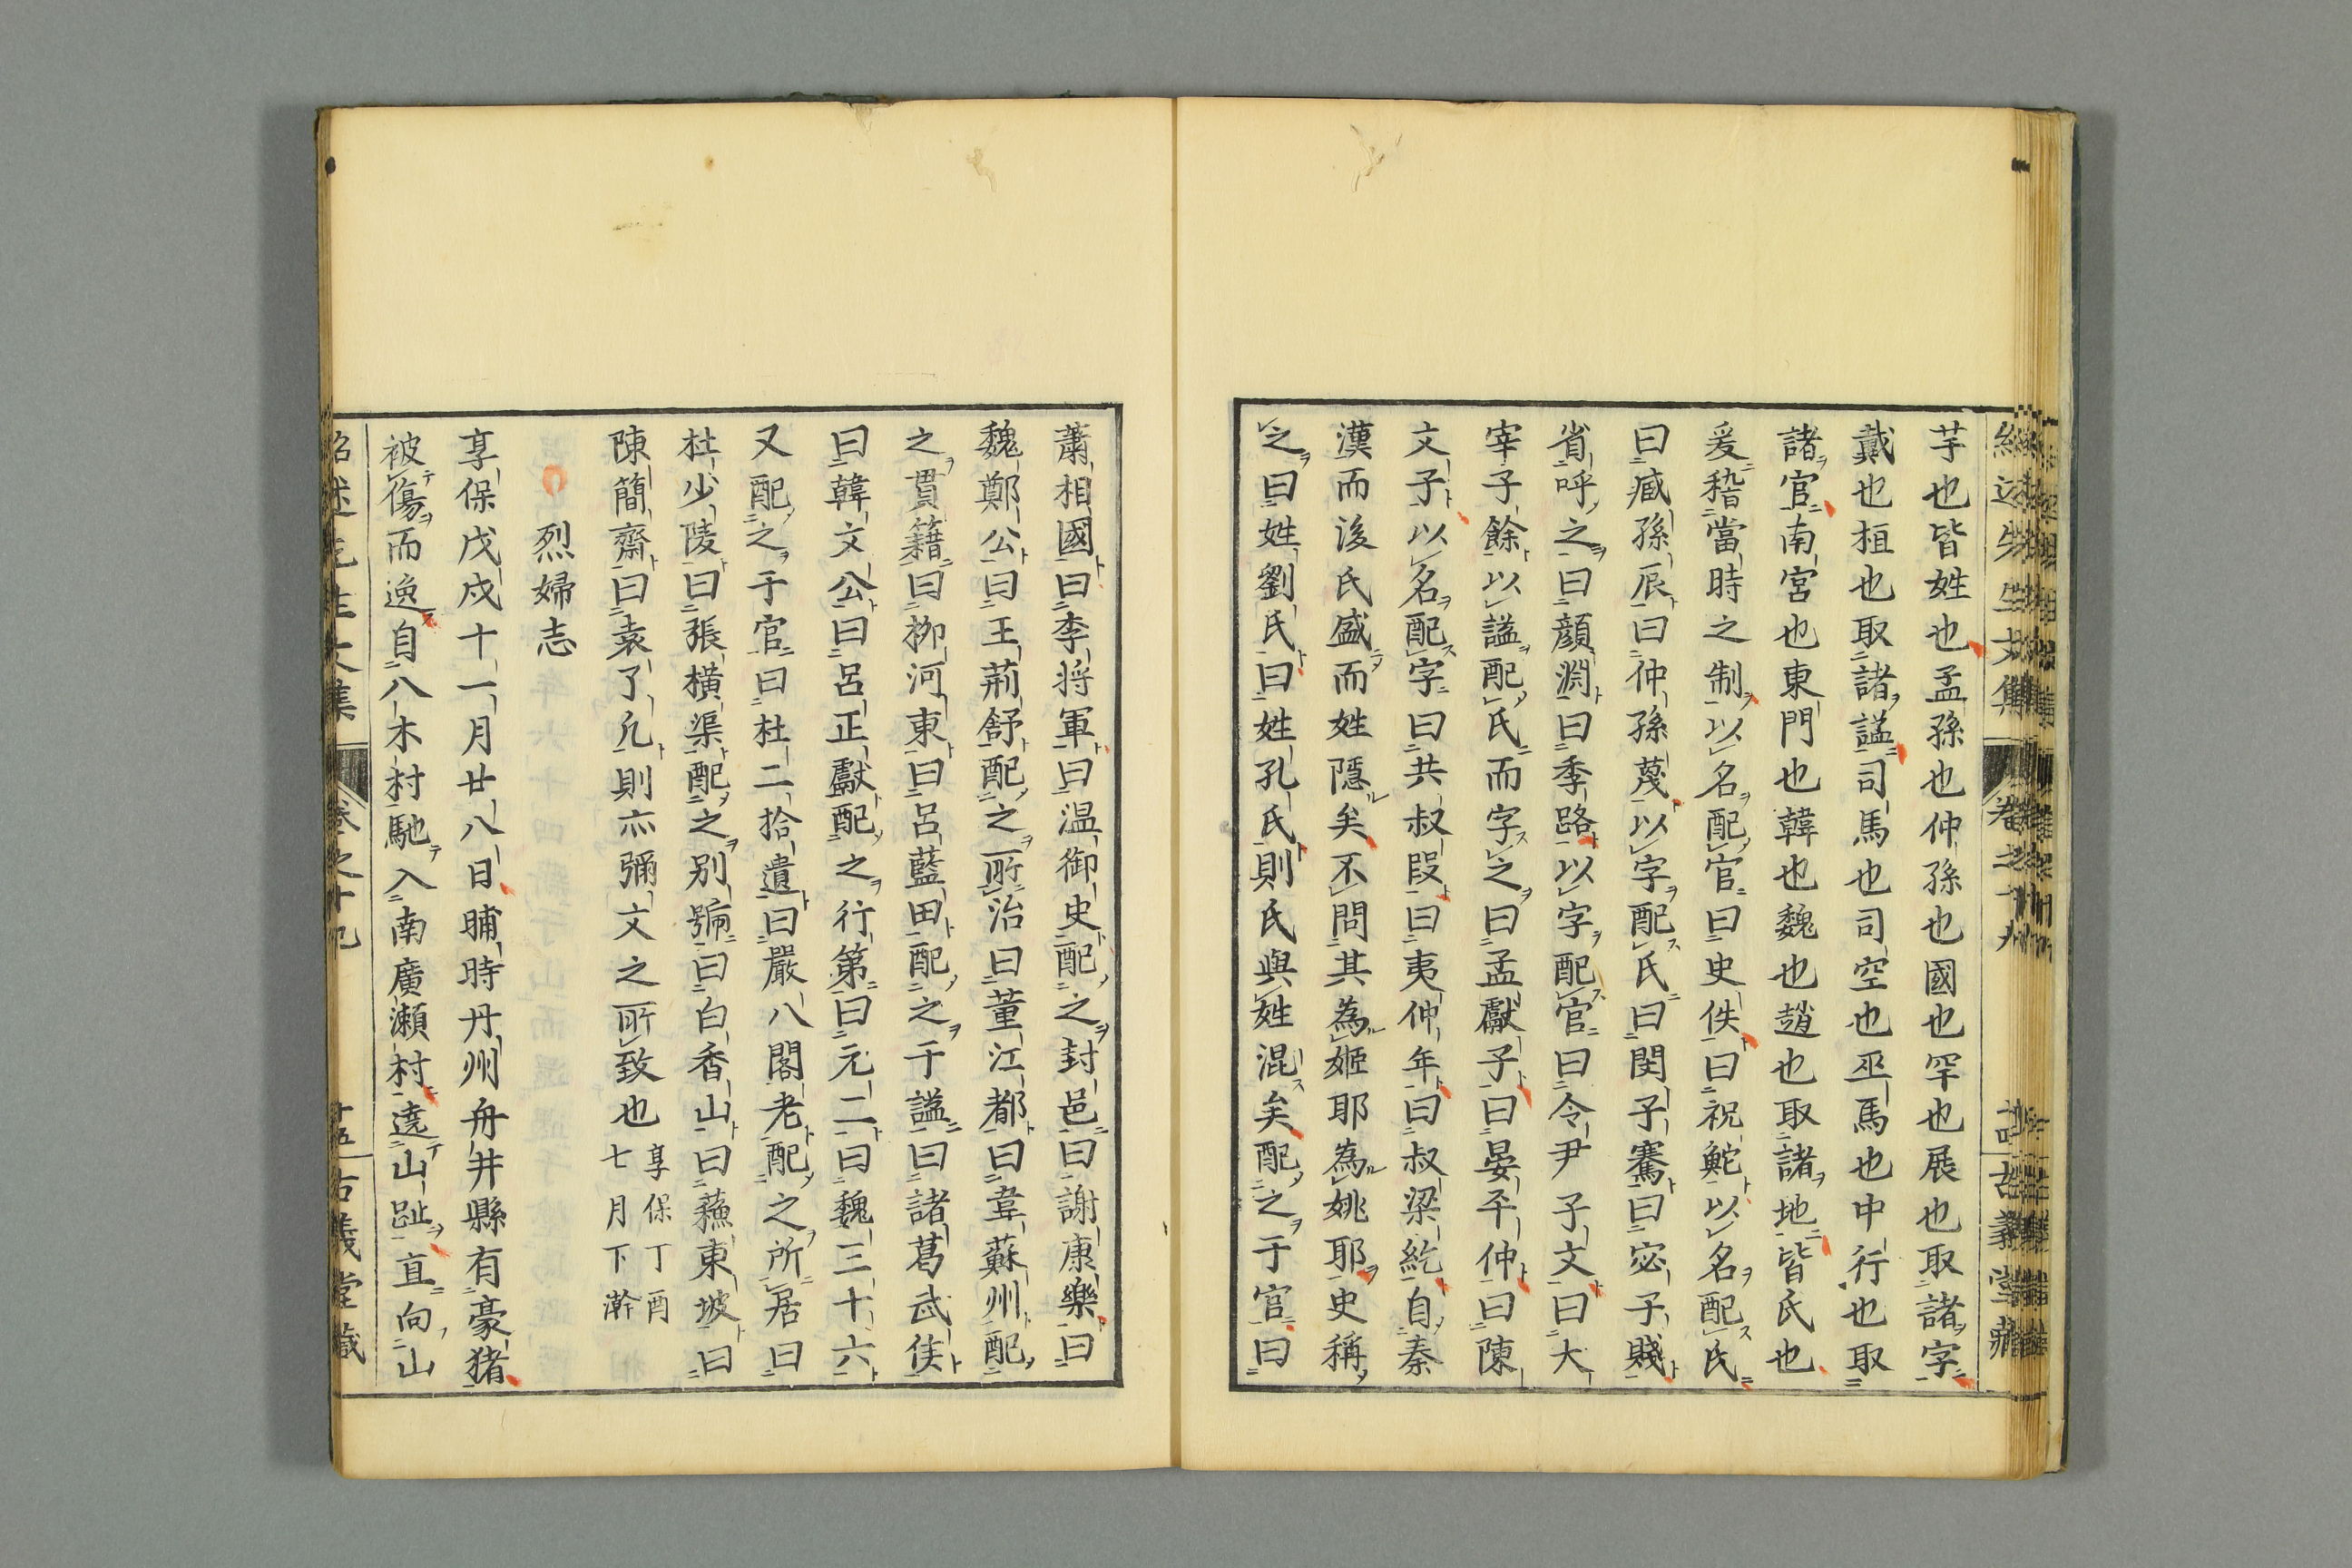 芋也皆姓也孟孫也仲孫也國也罕也展也取諸字
戴也桓也取諸謚司馬也司空也巫馬也中行也取
諸官南宮也東門也韓也魏也趙也取諸地皆氏也
爰稽當時之制以名配官曰史佚曰祝鮀以名配氏
曰臧孫辰曰仲孫蔑以字配氏曰閔子騫曰宓子賤
省呼之曰顔淵曰季路以字配官曰令尹子文曰大
宰子餘以謚配氏而字之曰孟獻子曰晏平仲曰陳
文子以名配字曰共叔段曰夷仲年曰叔梁紇自秦
漢而後氏盛而姓隱矣不問其為姬耶為姚耶史稱
之曰姓劉氏曰姓孔氏則氏與姓混矣配之于官曰
蕭相國曰李將軍曰温御史配之封邑曰謝康樂曰
魏鄭公曰王荊舒配之所治曰董江都曰韋蘇州配
之貫籍曰柳河東曰呂藍田配之于謚曰諸葛武侯
曰韓文公曰呂正獻配之行第曰元二曰魏三十六
又配之于官曰杜二拾遺曰嚴八閣老配之所居曰
杜少陵曰張橫渠配之別號曰白香山曰蘓東坡曰
陳簡齋曰袁了凡則亦彌文之所致也 享保丁酉
七月下澣
烈婦志
享保戊戌十一月廿八日晡時丹州舟井縣有豪猪
被傷而逸自八木村馳入南廣瀬村遶山趾直向山